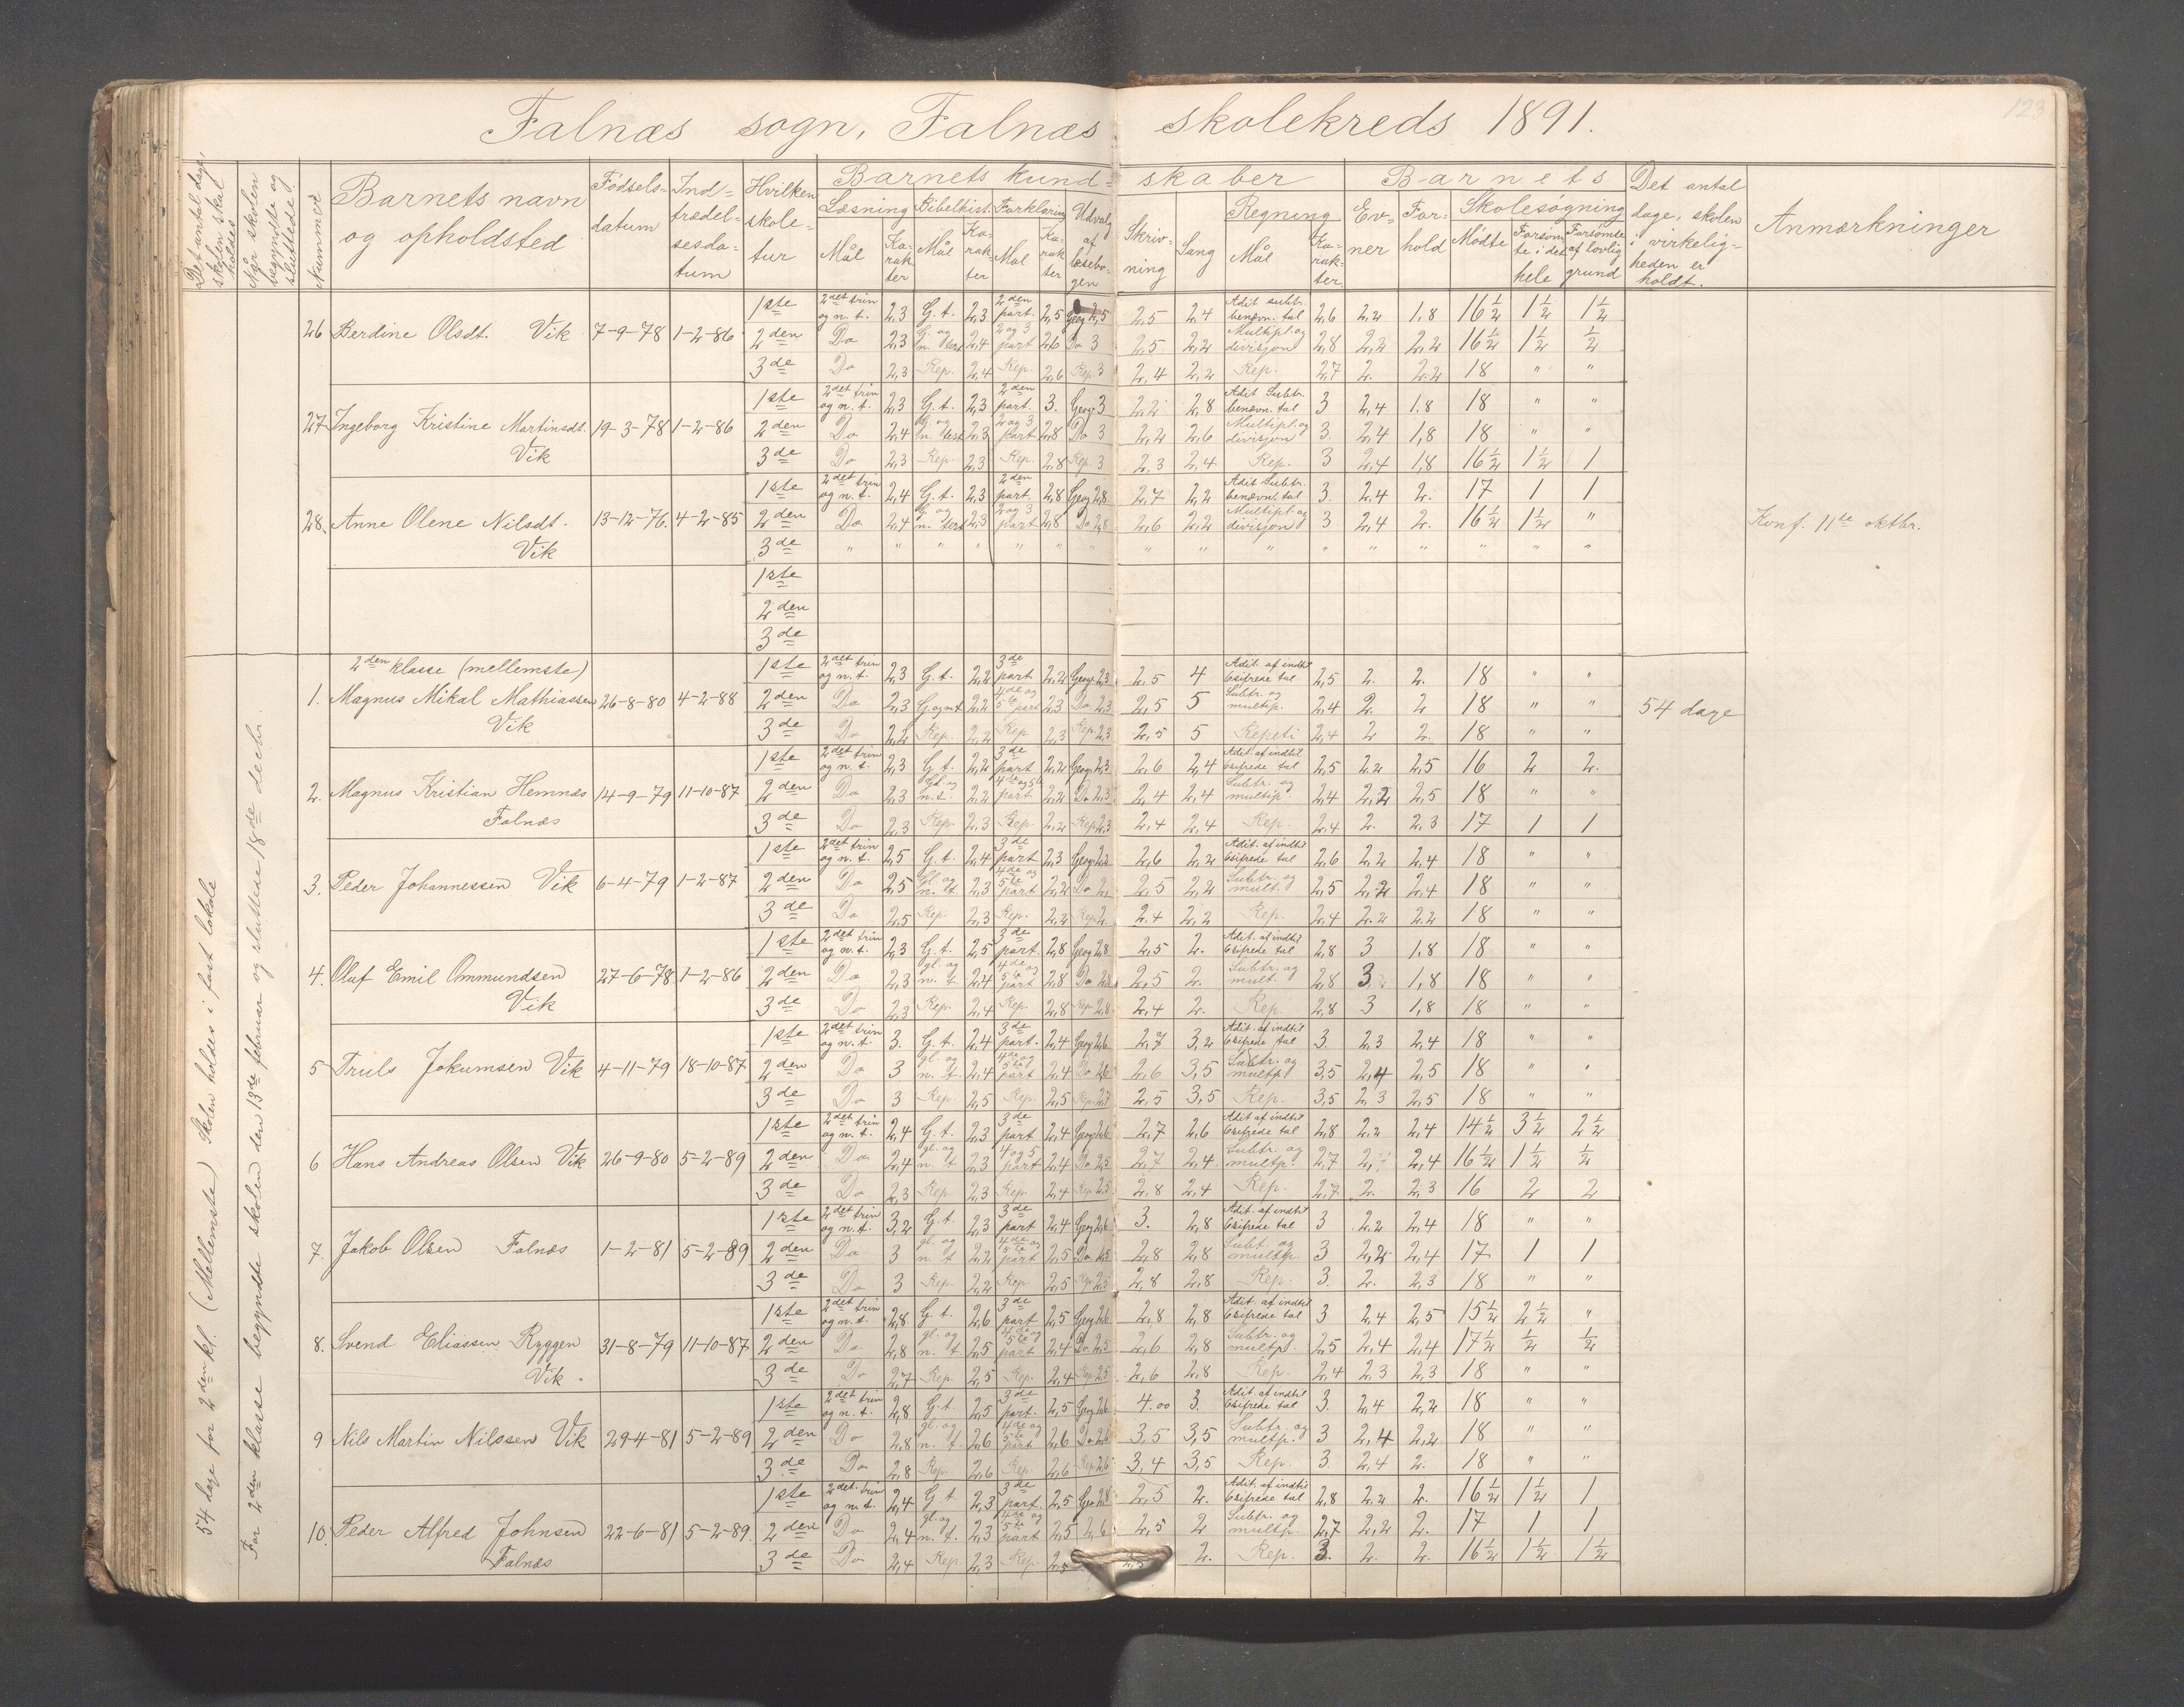 Falnæs sogn, Falnæs skolekreds 1891.
123
Det antal dage, skolen skal holdes
Når skolen begyndte og sluttede.
Nummer
Barnets navn og opholdsted
Fødsels-datum
Ind-trædel-sesda-tum
Hvilken skole-tur
Barnets kund-skaber
Læsning Mål Ka-rak-ter
Bibelhist. Mål Ka-rak-ter
Forklaring Mål Ka-rak-ter
Udvalg af læsebo-gen
Skriv-ning
Sang
Regning Mål Ka-rak-ter.
Barnets
Ev-ner
For-hold
Skolesøgning
Mødte
Forsøm-te i det hele
Forsømte af lovlig grund
Det antal dage, skolen i virkelig-heden er holdt.
Anmærkninger
26 Berdine Olsdt. Vik 7-9-78 1-2-86
1ste 2det trin og n. t. 2,3 G. t. 2,3 2den part. 2,5 Geog 2,5 2,5 2,4 Adit subtr. benævn. tal 2,6 2,2 1,8 16½ 1½ 1½
2den Do 2,3 G. og n. test 2,4 2 og 3 part 2,6 Do 3 2,5 2,2 Multipl. og divisjon 2,8 2,2 2,2 16½ 1½ ½
3de Do 2,3 Rep. 2,4 Rep. 2,6 Rep. 3 2,4 2,2 Rep. 2,7 2. 2,2 18 " "
27 Ingeborg Kristine Martinsdt. Vik 19-3-78 1-2-86
1ste 2det trin og n. t. 2,3 G. t. 2,3 2den part. 3. Geog 3 2,2 2,8 Adit Subtr. benævn. tal 3 2,4 1,8 18 " "
2den Do 2,4 G. og n. test 2,3 2 og 3 part 2,8 Do 3 2,2 2,6 Multipl. og divisjon 3. 2,4 1,8 18 " "
3de Do 2,3 Rep. 2,3 Rep. 2,8 Rep. 3 2,3 2,4 Rep. 3 2,4 1,8 16½ 1½ 1
28. Anne Olene Nilsdt. Vik 13-12-76. 4-2-85
1ste 2det trin og n. t. 2,4 G. t. 2,3 2den part. 2,8 Geog 2,8 2,7 2,2 Adit Subtr. benævn. tal 3. 2,4 2. 17 1 1
2den Do 2,4 G. og n. test 2,3 2 og 3 part 2,8 Do 2,8 2,6 2,2 Multipl. og divisjon 3 2,4 2. 16½ 1½ "
Konf. 11te oktbr.
3de " " " " " " " " " " " " " " " "
1ste
2den
3de
2den klasse (mellemste)
1. Magnus Mikal Mathiassen Vik 26-8-80 4-2-88
1ste 2det trin og n. t. 2,3 G. t. 2,2 3de part 2,2 Geogr 2,3 2,5 4 Adit. af indtil 6sifrede tal 2,5 2. 2. 18 " "
2den Do 2,3 G. og n. t 2,2 4de og 5te part 2,3 Do 2,3 2,5 5 Subtr. og multip. 2,4 2. 2 18 " "
54 dage
3de Do 2,2 Rep. 2,2 Rep 2,3 Rep. 2,3 2,5 5 Repeti 2,4 2 2. 18 " "
2. Magnus Kristian Hemnæs Falnæs 14-9-79 11-10-87
1ste 2det trin og n. t. 2,3 G. t. 2,2 3de part 2,2 Geogr 2,3 2,6 2,4 Adit. af indtil 6sifrede tal 2,5 2,2 2,5 16 2 2.
2den Do 2,3 Gl. og n. t. 2,2 4de og 5te part 2,2 Do 2,3 2,4 2,4 Subtr. og multip. 2,4 2,2 2,5 18 " "
3de Do 2,3 Rep. 2,3 Rep. 2,2 Rep 2,3 2,4 2,4 Rep. 2,4 2. 2,3 17 1 1
3. Peder Johannessen Vik 6-4-79 1-2-87
1ste 2det trin og n. t. 2,5 G. t. 2,4 3de part 2,3 Geogr 2,2 2,6 2,2 Adit. af indtil 6sifrede tal 2,6 2,2 2,4 18 " "
2den Do 2,5 Gl. og n. t. 2,3 4de og 5te part 2,2 Do 2. 2,5 2,2 Subtr. og mult. 2,5 2,2 2,4 18 " "
3de Do 2,5 Rep. 2,3 Rep. 2,2 Rep 2. 2,4 2,2 Rep. 2,4 2,2 2,2 18 " "
4. Oluf Emil Ommundsen Vik 27-6-78 1-2-86
1ste 2det trin og n. t. 2,3 G. t. 2,5 3de part. 2,8 Geog 2,8 2,5 2. Adit. af indtil 6sifrede tal 2,8 3 1,8 18 " "
2den Do 2,3 gl. og n. t. 2,4 4de og 5te part 2,8 Do 2,8 2,5 2. Subtr. og mult. 2,8 3. 1,8 18 " "
3de Do 2,3 Rep. 2,4 Rep. 2,8 Rep 2,8 2,4 2. Rep. 2,8 3 1,8 18 " "
5 Truls Jokumsen Vik 4-11-79 18-10-87
1ste 2det trin og n. t. 3. G. t. 2,4 3de part. 2,4 Geog 2,6 2,7 3,2 Adit. af indtil 6sifrede tal 3. 2,3 2,4 18 " "
2den Do 3 gl. og n. t 2,4 4de og 5te part 2,4 Do 2,6 2,6 3,5 Subtr. og multp. 3,5 2,4 2,5 18 " "
3de Do 3 Rep. 2,5 Rep. 2,5 Rep. 2,7 2,5 3,5 Rep. 3,5 2,3 2,5 18 " "
6 Hans Andreas Olsen Vik 26-9-80 5-2-89
1ste 2det trin og n. t. 2,4 G. t. 2,3 3de part 2,4 Geogr 2,6 2,7 2,6 Adit af indtil 6sifrede tal 2,8 2,2 2,4 14½ 3½ 2½
2den Do 2,4 gl. og n. t 2,3 4 og 5 part 2,4 Do 2,5 2,7 2,4 Subtr. og multp. 2,7 2, 2,4 16½ 1½ ½
3de Do 2,3 Rep. 2,3 Rep. 2,4 Rep. 2,5 2,8 2,4 Rep. 2,7 2. 2,3 16 2 2
7. Jakob Olsen Falnæs 1-2-81 5-2-89
1ste 2det trin og n. t. 3,2 G. t. 2,3 3de part 2,4 Geog 2,6 3. 2,8 Adit. af indtil 6sifrede tal 3 2,2 2,4 18 " "
2den Do 3 gl. og n. t 2,2 4de og 5te part 2,5 Do 2,5 2,8 2,8 Subt. og multp. 3 2,2 2,4 17 1 1
3de Do 3 Rep. 2,2 Rep. 2,5 Rep 2,5 2,8 2,8 Rep. 3. 2. 2,3 18 " "
8. Svend Eliassen Ryggen Vik 31-8-79 11-10-87
1ste 2det trin og n. t. 2,8 G. t. 2,6 3de part 2,5 Geog 2,6 2,8 2,8 Adit. af indtil 6sifrede tal 3 2,4 2,5 15½ 2½ "
2den Do 2,8 gl. og n. t. 2,5 4de og 5te part 2,4 Do. 2,5 2,6 2,8 Subtr. og multp. 2,5 2,4 2,4 17½ ½ ½
3de Do 2,7 Rep. 2,5 Rep. 2,4 Rep 2,5 2,6 2,8 Rep. 2,4 2,3 2,3 18 " "
9 Nils Martin Nilssen Vik 29-4-81 5-2-89
1ste 2det trin og n. t. 2,8 G. t. 2,5 3de part. 2,5 Geog 2,6 4.00 3. Adit. af indtil 6sifrede tal 3. 2,4 2,2 18 " "
2den Do 2,8 gl. og n. t. 2,6 4de og 5te part 2,6 Do 2,6 3,5 3,5 Subtr. og multp. 3 2,4 2,2 18 " "
3de Do 2,8 Rep. 2,6 Rep. 2,6 Rep 2,6 3,4 3,5 Rep. 3. 2,4 2. 18 " "
10. Peder Alfred Johnsen Falnæs 22-6-81 5-2-89.
1ste 2det trin og n. t. 2,4 G. t. 2,3 3de part. 2,5 Geo 2,8 2,5 2. Adit. af indtil 6sifrede tal 2,8 2,2 2. 16½ 1½ 1
2den Do 2,4 gl. og n. t. 2,3 4de og 5te part 2,5 2,6 2,5 2 Subtr. og multp. 2,7 2,2 2. 17 1 1
3de Do 2,4 Rep. 2,3 Rep. 2,5 2. Rep. 3. 2. 2. 16½ 1½ 1½
54 dage for 2den kl. (Mellemste) Skolen holdes i fast lokale
For 2den klasse begyndte skolen den 13de februar og sluttede 18de decbr.